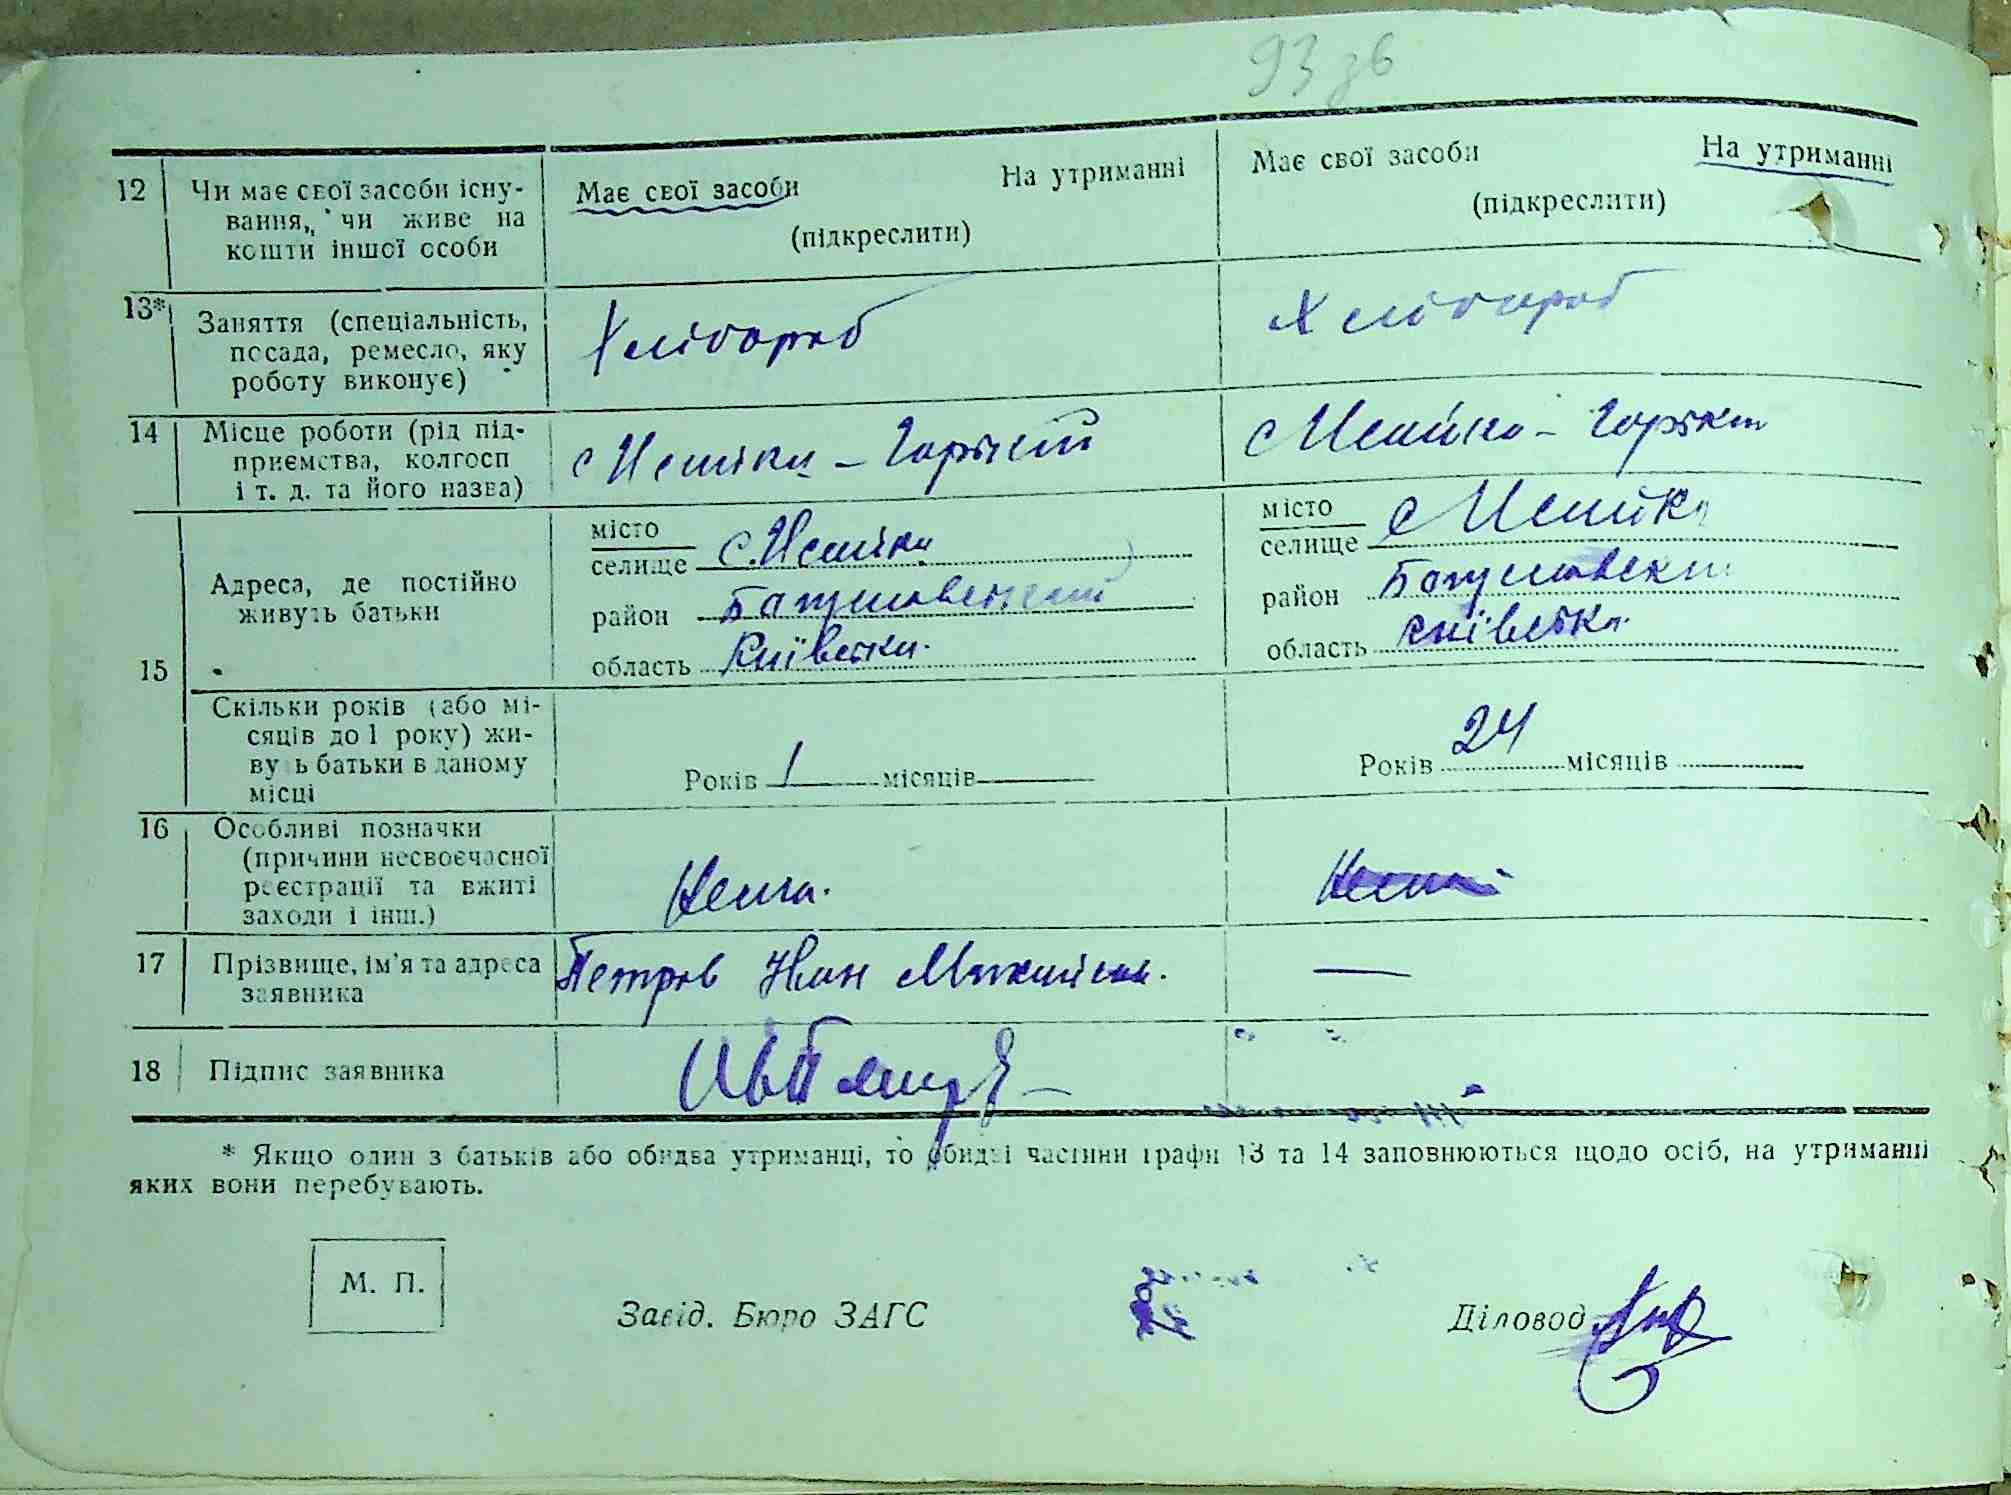 93 зв
12 Чи має свої засоби існу-
вання, чи живе на
кошти іншої особи
Має свої засоби На утриманні
(підкреслити)
Має свої засоби На утриманні
(підкреслити)
13* Заняття (спеціальність,
посада, ремесло, яку
роботу виконує)
Хлібороб
Хлібороб
14 Місце роботи (рід під-
приємства, колгосп
і т. д. та його назва)
15 Адреса, де постійно
живуть батьки
місто
селище
район Богуславський
область Київська.
місто
селище
район Богуславський
область Київська.
Скільки років (або мі-
сяців до 1 року) жи-
вуть батьки в даному
місці
Років 1 місяців
Років 24 місяців
16 Особливі позначки
(причини несвоєчасної
реєстрації та вжиті
заходи і інш.)
Нема.
Нема
17 Прізвище, ім'я та адреса
заявника
Петров Іван
18 Підпис заявника
* Якщо один з батьків або обидва утриманці, то обидві частини графи 13 та 14 заповнюються щодо осіб, на утриманні
яких вони перебувають.
М. П.
Завід. Бюро ЗАГС
Діловод